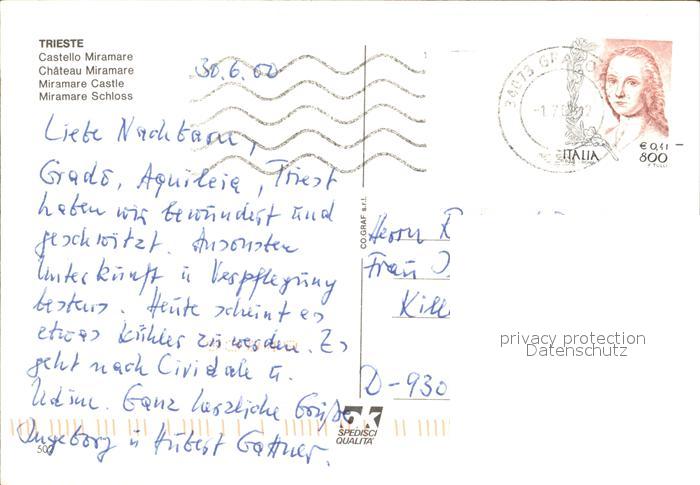 TRIESTE
Castello Miramare
Château Miramare
Miramare Castle
Miramare Schloss
30.6.00
Liebe Nachbarn,
Grado, Aquileia, Triest
haben wir bewundert und
geschwitzt. Ansonsten
Unterkunft u Verpflegung
bestens. Heute scheint es
etwas kühler zu werden. Es
geht nach Cividale u.
Udine. Ganz herzliche Grüße
Ingeborg u Hubert Gattner.
500
CO.GRAF s.r.l.
SPEDISCI
QUALITA'
34073 GRADO
ITALIA
€ 0,41
800
Herrn
Frau
D-930
privacy protection
Datenschutz